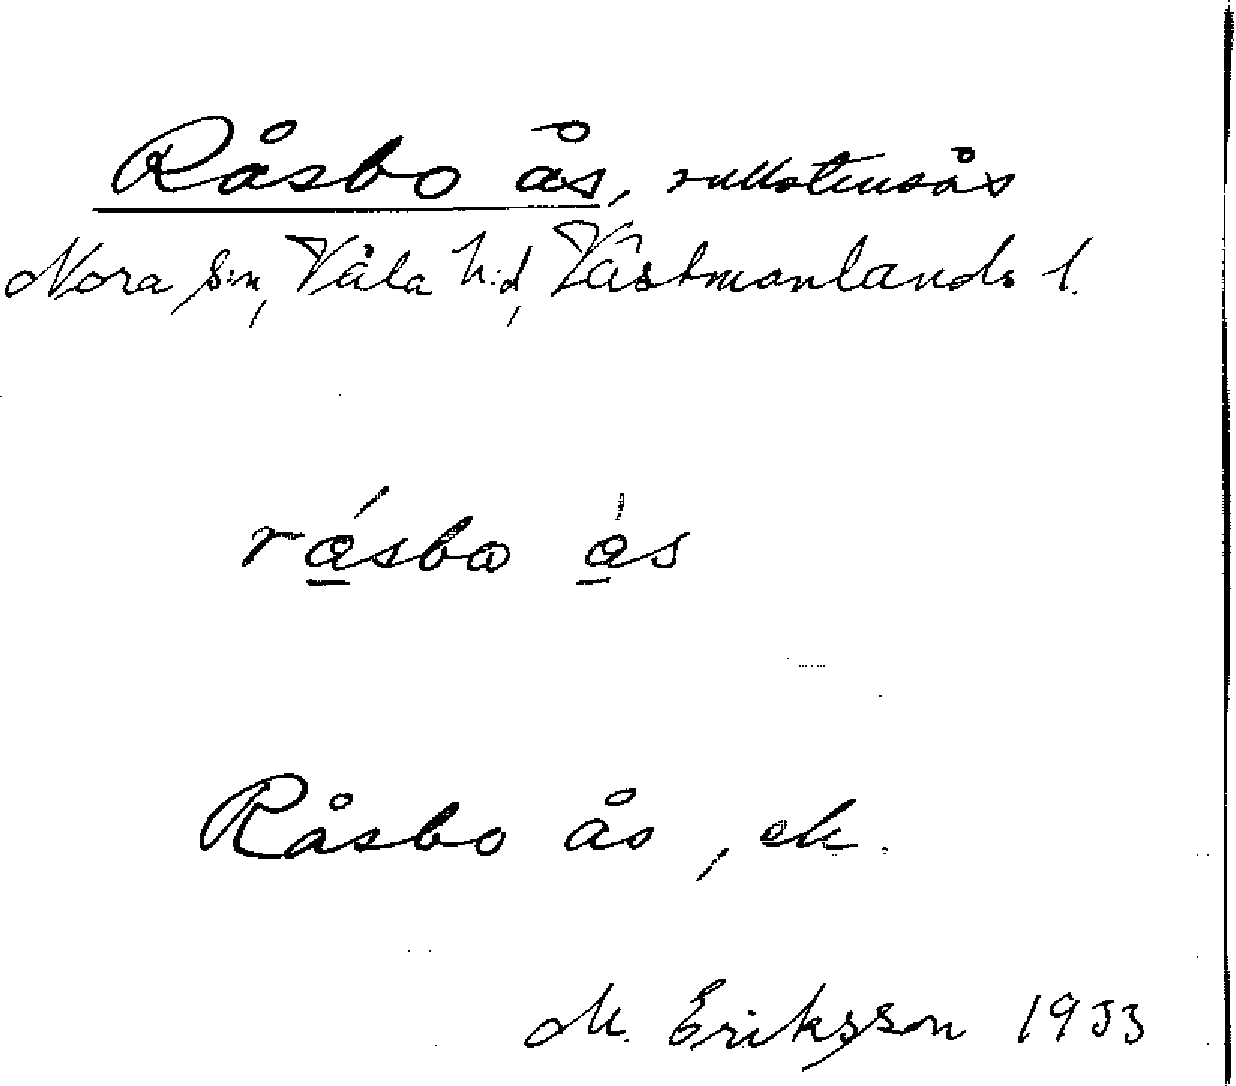 Råsbo ås, rullstensås
Nora s:n, Våla h:d, Västmanlands l.
rásbo ás
Råsbo ås, ek.
M. Eriksson 1933